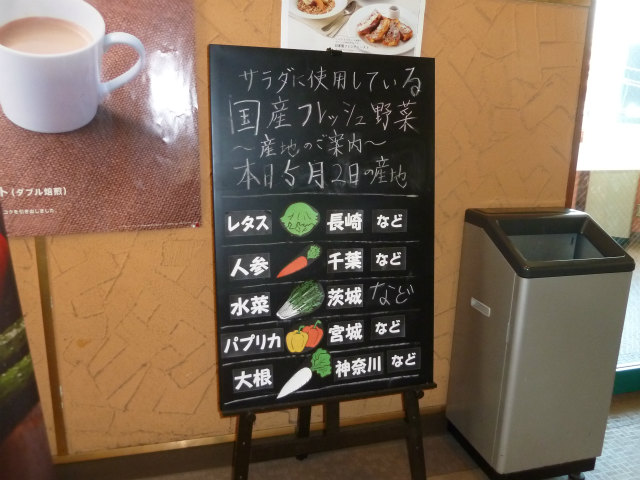 サラダに使用している
国産フレッシュ野菜
～産地のご案内～
本日5月2日の産地
レタス 長崎 など
人参 千葉 など
水菜 茨城 など
パプリカ 宮城 など
大根 神奈川 など
ト(ダブル焙煎)
コクを引き出しました。